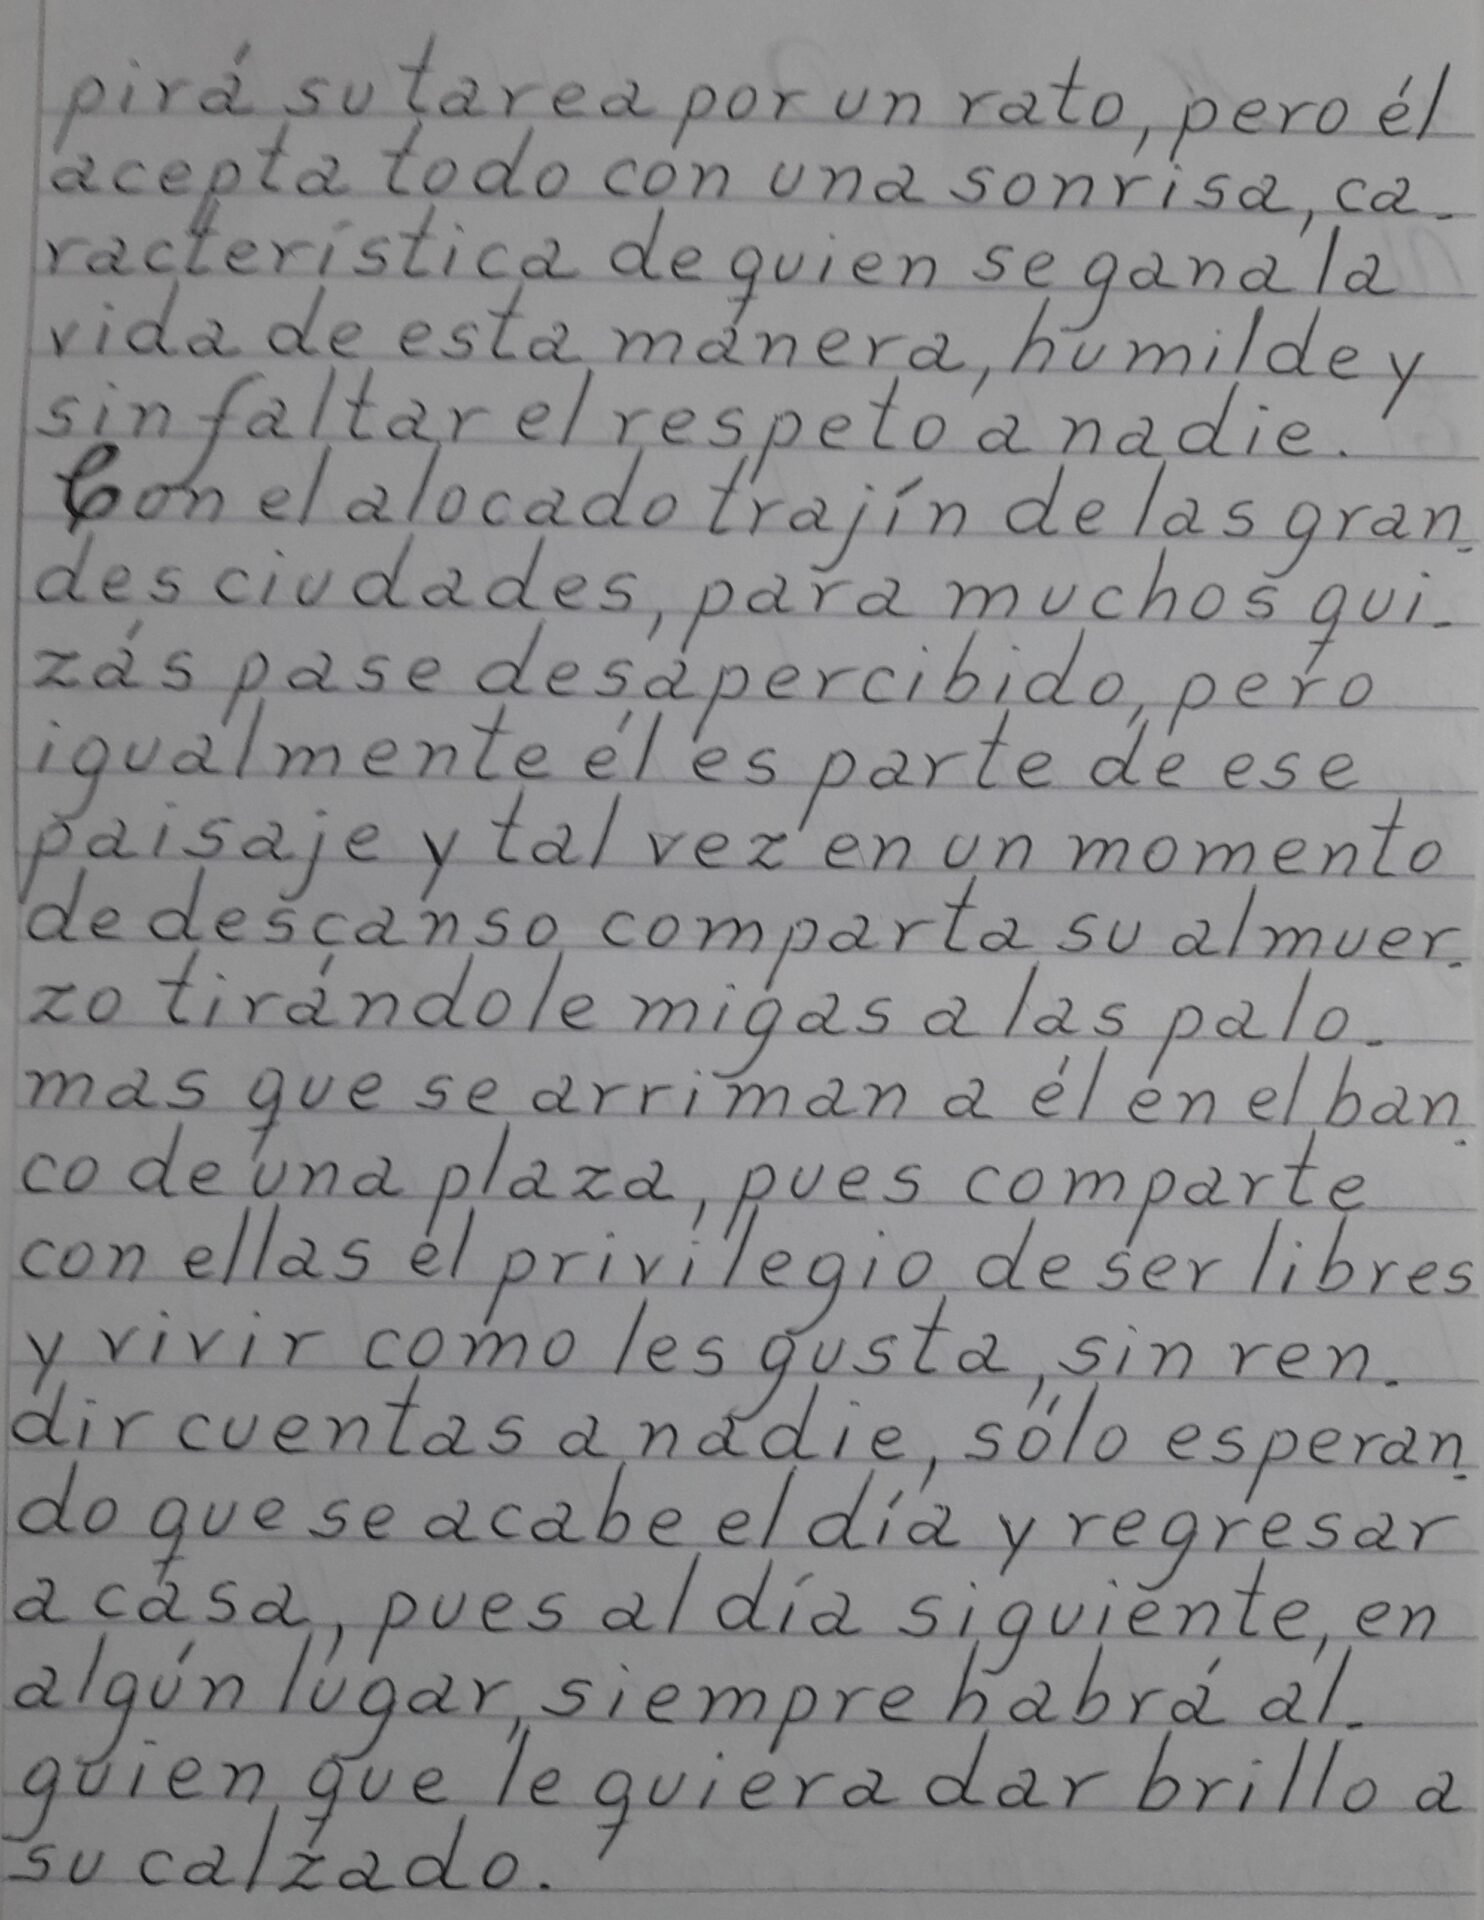 pirá su tarea por un rato, pero él
acepta todo con una sonrisa, ca-
racterística de quien se gana la
vida de esta manera, humilde y
sin faltar el respeto a nadie.
Con el alocado trajín de las gran-
des ciudades, para muchos qui-
zás pase desapercibido, pero
igualmente él es parte de ese
paisaje y tal vez en un momento
de descanso comparta su almuer-
zo tirándole migas a las palo-
mas que se arriman a él en el ban-
co de una plaza, pues comparte
con ellas el privilegio de ser libres
y vivir como les gusta, sin ren-
dir cuentas a nadie, sólo esperan-
do que se acabe el día y regresar
a casa, pues al día siguiente, en
algún lugar, siempre habrá al-
guien que le quiera dar brillo a
su calzado.